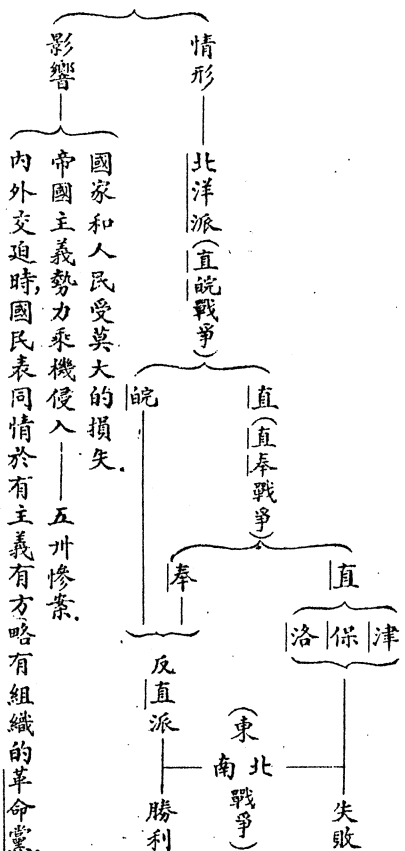 情形
北洋派(直皖戰爭)
直(直奉戰爭)
直
津
保
洛
失敗
奉
皖
反直派
勝利
(東
南北
戰爭)
影響
國家和人民受莫大的損失.
帝國主義勢力乘機侵入——五卅慘案.
內外交迫時,國民表同情於有主義有方略有組織的革命黨.